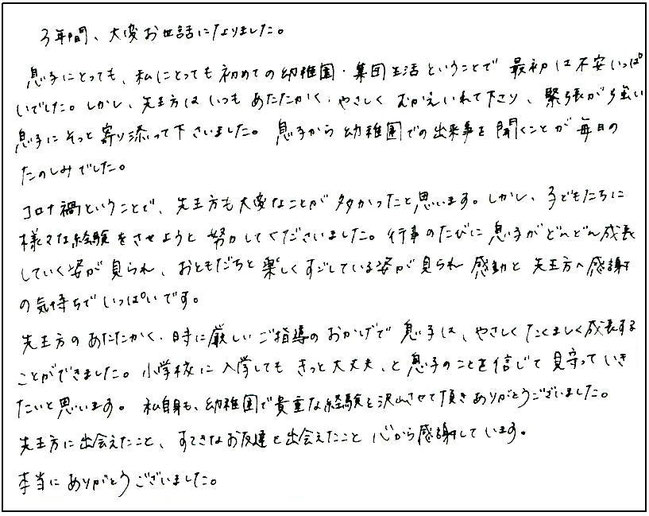 3年間、大変お世話になりました。
息子にとっても、私にとっても初めての幼稚園・集団生活ということで 最初は不安いっぱ
いでした。しかし、先生方は いつも あたたかく・やさしく むかえいれて下さり、緊張が強い
息子に そっと 寄り添って下さいました。 息子から 幼稚園での出来事を 聞くことが 毎日の
たのしみでした。
コロナ禍ということで、先生方も大変なことが 多かったと思います。しかし、子どもたちに
様々な経験をさせようと 努力してくださいました。行事のたびに 息子がどんどん成長
していく姿が見られ、おともだちと楽しくすごしている姿が見られ 感動と 先生方へ感謝
の気持ちでいっぱいです。
先生方の あたたかく・時に厳しい ご指導の おかげで 息子は、やさしく たくましく成長する
ことができました。小学校に 入学しても きっと大丈夫、と 息子のことを信じて 見守っていき
たいと思います。 私自身も、幼稚園で貴重な経験を沢山させて頂き ありがとうございました。
先生方に出会えたこと、すてきなお友達と出会えたこと 心から感謝しています。
本当に ありがとう ございました。